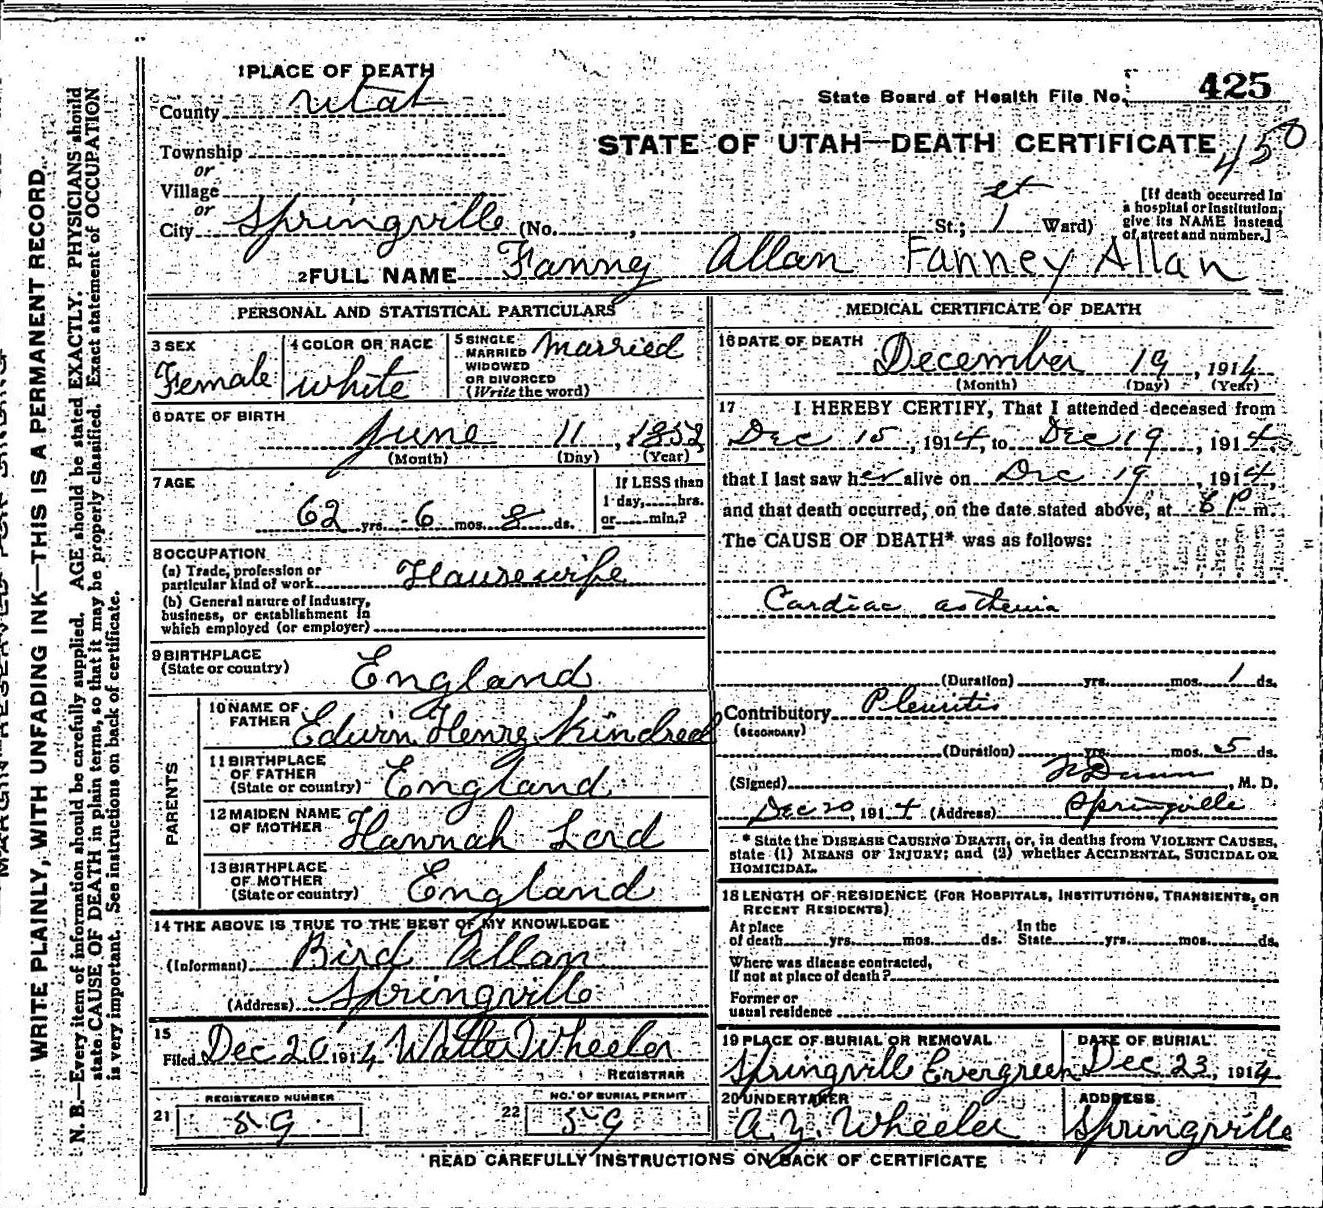 1 PLACE OF DEATH
County Utah
State Board of Health File No. 425
Township
STATE OF UTAH—DEATH CERTIFICATE 450
or
Village
or
City Springville (No. , St.; 1 st Ward)
[If death occurred in a hospital or institution, give its NAME instead of street and number.]
2 FULL NAME Fanney Allan Fanney Allan
PERSONAL AND STATISTICAL PARTICULARS
3 SEX Female
4 COLOR OR RACE white
5 SINGLE MARRIED WIDOWED OR DIVORCED (Write the word) Married
6 DATE OF BIRTH
June 11, 1852
(Month) (Day) (Year)
7 AGE
62 yrs. 6 mos. 8 ds.
If LESS than
1 day, hrs.
or min.?
8 OCCUPATION
(a) Trade, profession or
particular kind of work Housewife
(b) General nature of industry,
business, or establishment in
which employed (or employer)
9 BIRTHPLACE
(State or country) England
PARENTS
10 NAME OF
FATHER Edwin Henry Kindred
11 BIRTHPLACE
OF FATHER
(State or country) England
12 MAIDEN NAME
OF MOTHER Hannah Lord
13 BIRTHPLACE
OF MOTHER
(State or country) England
14 THE ABOVE IS TRUE TO THE BEST OF MY KNOWLEDGE
(Informant) Bird Allan
(Address) Springville
15
Filed Dec 20 1914 Walter Wheeler
REGISTRAR
REGISTERED NUMBER
21 59
NO. OF BURIAL PERMIT
22 59
MEDICAL CERTIFICATE OF DEATH
16 DATE OF DEATH
December 19, 1914
(Month) (Day) (Year)
17 I HEREBY CERTIFY, That I attended deceased from
Dec 15, 1914, to Dec 19, 1914,
that I last saw her alive on Dec 19, 1914,
and that death occurred, on the date stated above, at 8 P m.
The CAUSE OF DEATH* was as follows:
Cardiac asthenia
(Duration) yrs. mos. 1 ds.
Contributory Pleuritis
(SECONDARY)
(Duration) yrs. mos. 5 ds.
(Signed) Dunn, M. D.
Dec 20, 1914 (Address) Springville
* State the DISEASE CAUSING DEATH, or, in deaths from VIOLENT CAUSES,
state (1) MEANS OF INJURY; and (2) whether ACCIDENTAL, SUICIDAL OR
HOMICIDAL.
18 LENGTH OF RESIDENCE (FOR HOSPITALS, INSTITUTIONS, TRANSIENTS, OR
RECENT RESIDENTS)
At place
of death yrs. mos. ds.
In the
State yrs. mos. ds.
Where was disease contracted,
If not at place of death?
Former or
usual residence
19 PLACE OF BURIAL OR REMOVAL
Springvill Evergreen
DATE OF BURIAL
Dec 23, 1914
20 UNDERTAKER
A. Y. Wheeler
ADDRESS
Springville
READ CAREFULLY INSTRUCTIONS ON BACK OF CERTIFICATE
MARGIN RESERVED FOR BINDING
WRITE PLAINLY, WITH UNFADING INK—THIS IS A PERMANENT RECORD.
N. B.—Every item of information should be carefully supplied. AGE should be stated EXACTLY. PHYSICIANS should
state CAUSE OF DEATH in plain terms, so that it may be properly classified. Exact statement of OCCUPATION
is very important. See instructions on back of certificate.